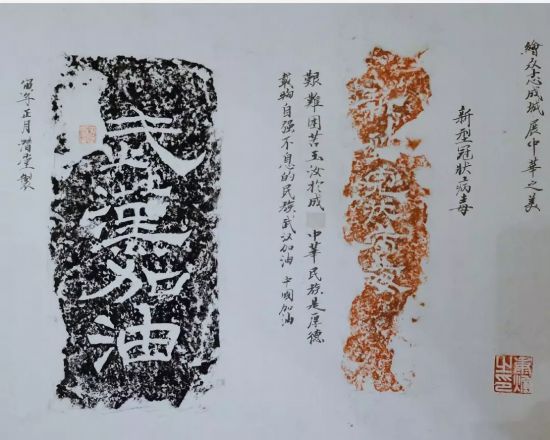 繪众志成城 展中華之美
新型冠狀病毒
艱難困苦玉汝於成 中華民族是厚德
載物自强不息的民族武汉加油 中國加油
武漢加油
正月 製